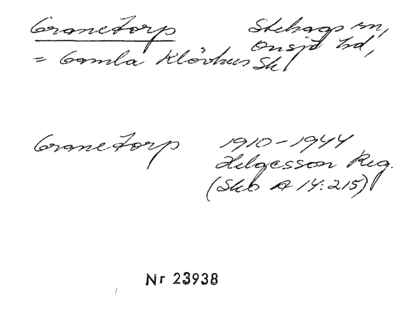 Granetorp Stehags sn,
Onsjö hd,
= Gamla Klövhus Sk
Granetorp 1910-1944
Helgesson Reg.
(Skb A 14:215)
Nr 23938